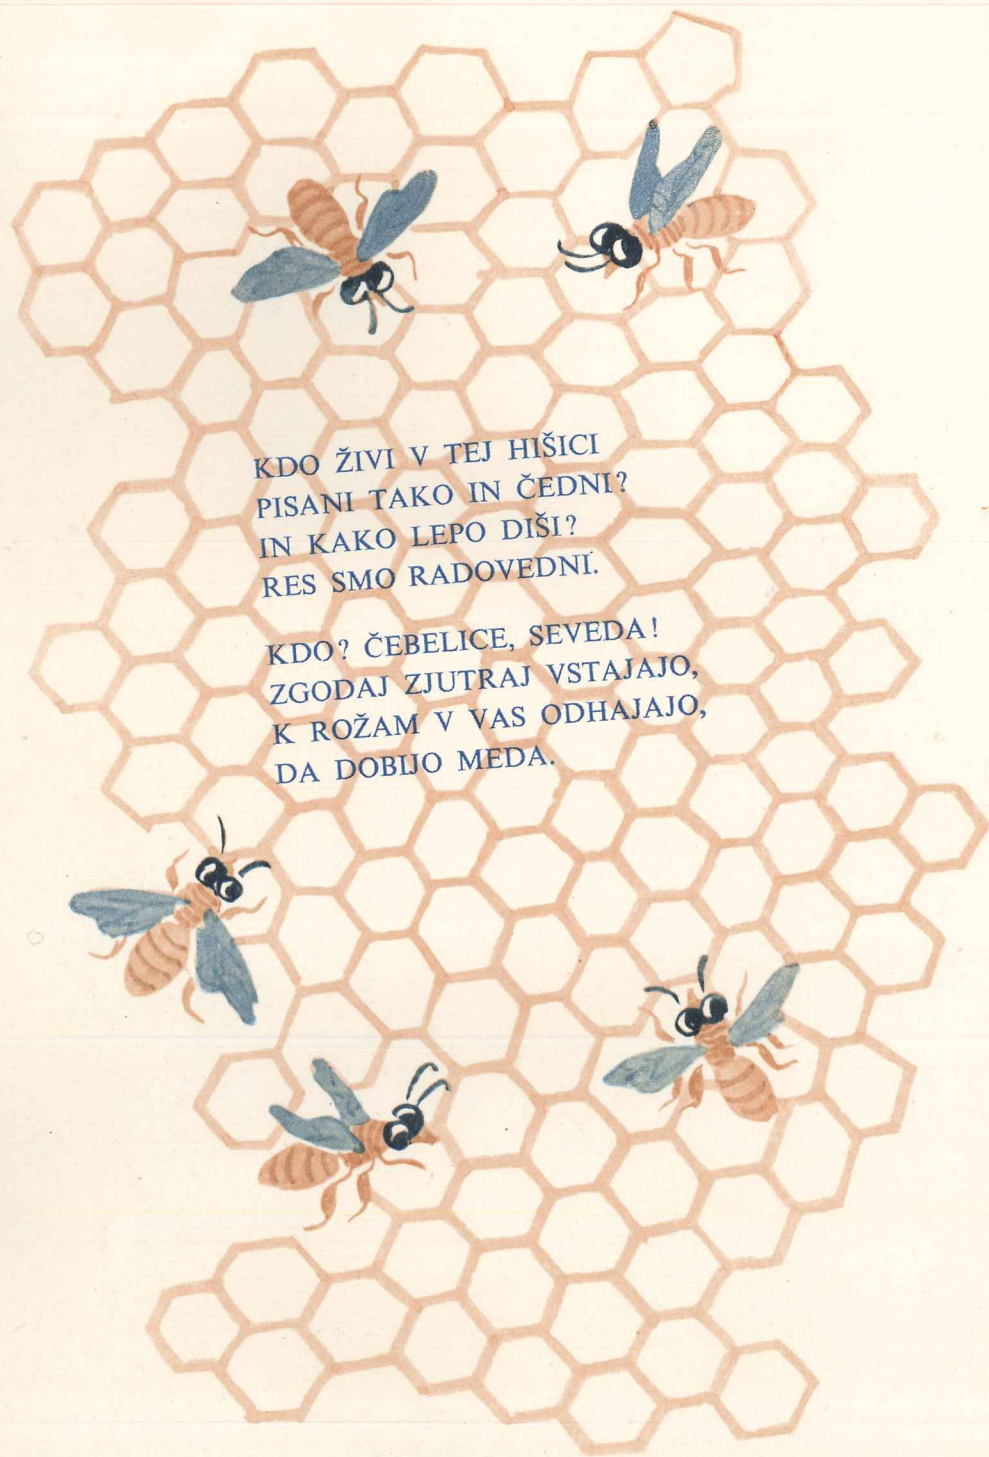 KDO ŽIVI V TEJ HIŠICI
PISANI TAKO IN ČEDNI?
IN KAKO LEPO DIŠI?
RES SMO RADOVEDNI.

KDO? ČEBELICE, SEVEDA!
ZGODAJ ZJUTRAJ VSTAJAJO,
K ROŽAM V VAS ODHAJAJO,
DA DOBIJO MEDA.